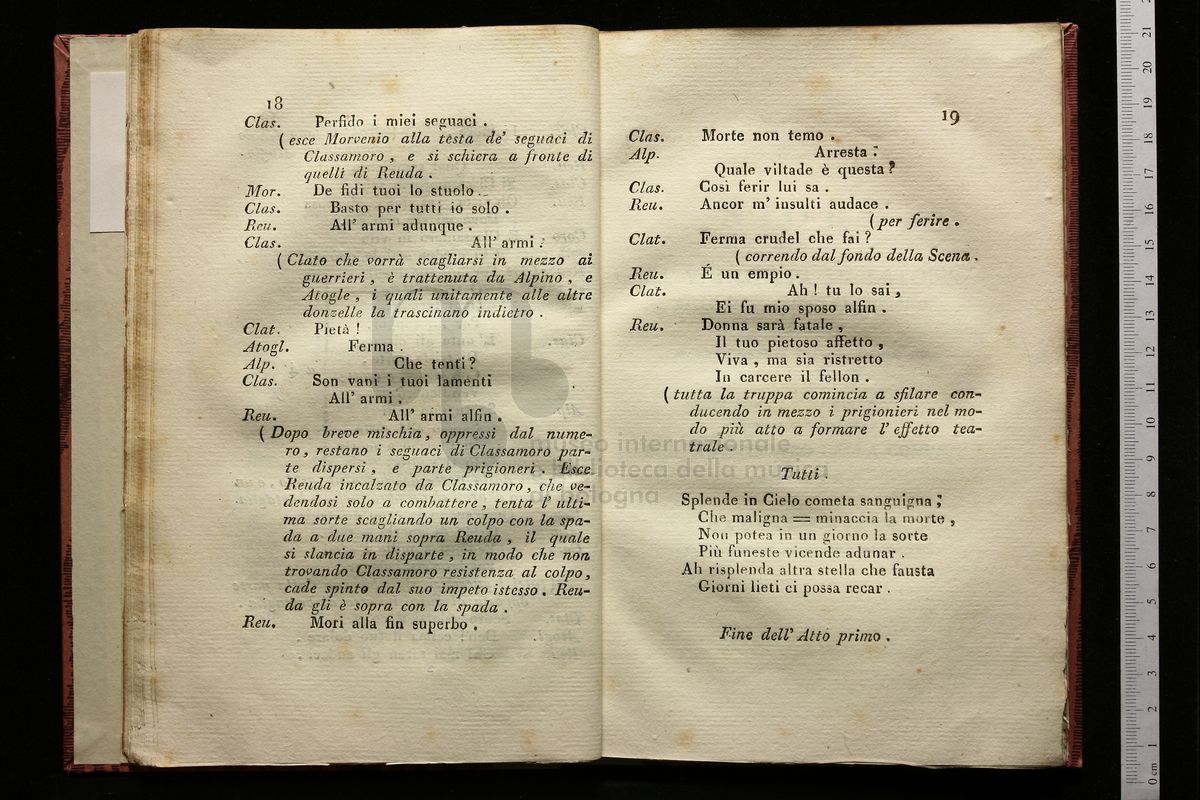 18
Clas. Perfido i miei seguaci .
( esce Morvenio alla testa de' seguaci di
Classamoro , e si schiera a fronte di
quelli di Reuda .
Mor. De fidi tuoi lo stuolo .
Clas. Basto per tutti io solo .
Reu. All' armi adunque .
Clas. All' armi .
( Clato che vorrà scagliarsi in mezzo ai
guerrieri , è trattenuta da Alpino , e
Atogle , i quali unitamente alle altre
donzelle la trascinano indietro .
Clat. Pietà !
Atogl. Ferma .
Alp. Che tenti ?
Clas. Son vani i tuoi lamenti
All' armi .
Reu. All' armi alfin .
( Dopo breve mischia , oppressi dal nume-
ro , restano i seguaci di Classamoro par-
te dispersi , e parte prigioneri . Esce
Reuda incalzato da Classamoro , che ve-
dendosi solo a combattere , tenta l' ulti-
ma sorte scagliando un colpo con la spa-
da a due mani sopra Reuda , il quale
si slancia in disparte , in modo che non
trovando Classamoro resistenza al colpo ,
cade spinto dal suo impeto istesso . Reu-
da gli è sopra con la spada .
Reu. Mori alla fin superbo .
19
Clas. Morte non temo .
Alp. Arresta :
Quale viltade è questa ?
Clas. Così ferir lui sa .
Reu. Ancor m' insulti audace .
( per ferire .
Clat. Ferma crudel che fai ?
( correndo dal fondo della Scena .
Reu. É un empio .
Clat. Ah ! tu lo sai ,
Ei fu mio sposo alfin .
Reu. Donna sarà fatale ,
Il tuo pietoso affetto ,
Viva , ma sia ristretto
In carcere il fellon .
( tutta la truppa comincia a sfilare con-
ducendo in mezzo i prigionieri nel mo-
do più atto a formare l' effetto tea-
trale .
Tutti .
Splende in Cielo cometa sanguigna ;
Che maligna = minaccia la morte ,
Non potea in un giorno la sorte
Più funeste vicende adunar .
Ah risplenda altra stella che fausta
Giorni lieti ci possa recar .
Fine dell' Atto primo .
museo internazionale
e biblioteca della musica
di bologna
0 cm 1 2 3 4 5 6 7 8 9 10 11 12 13 14 15 16 17 18 19 20 21